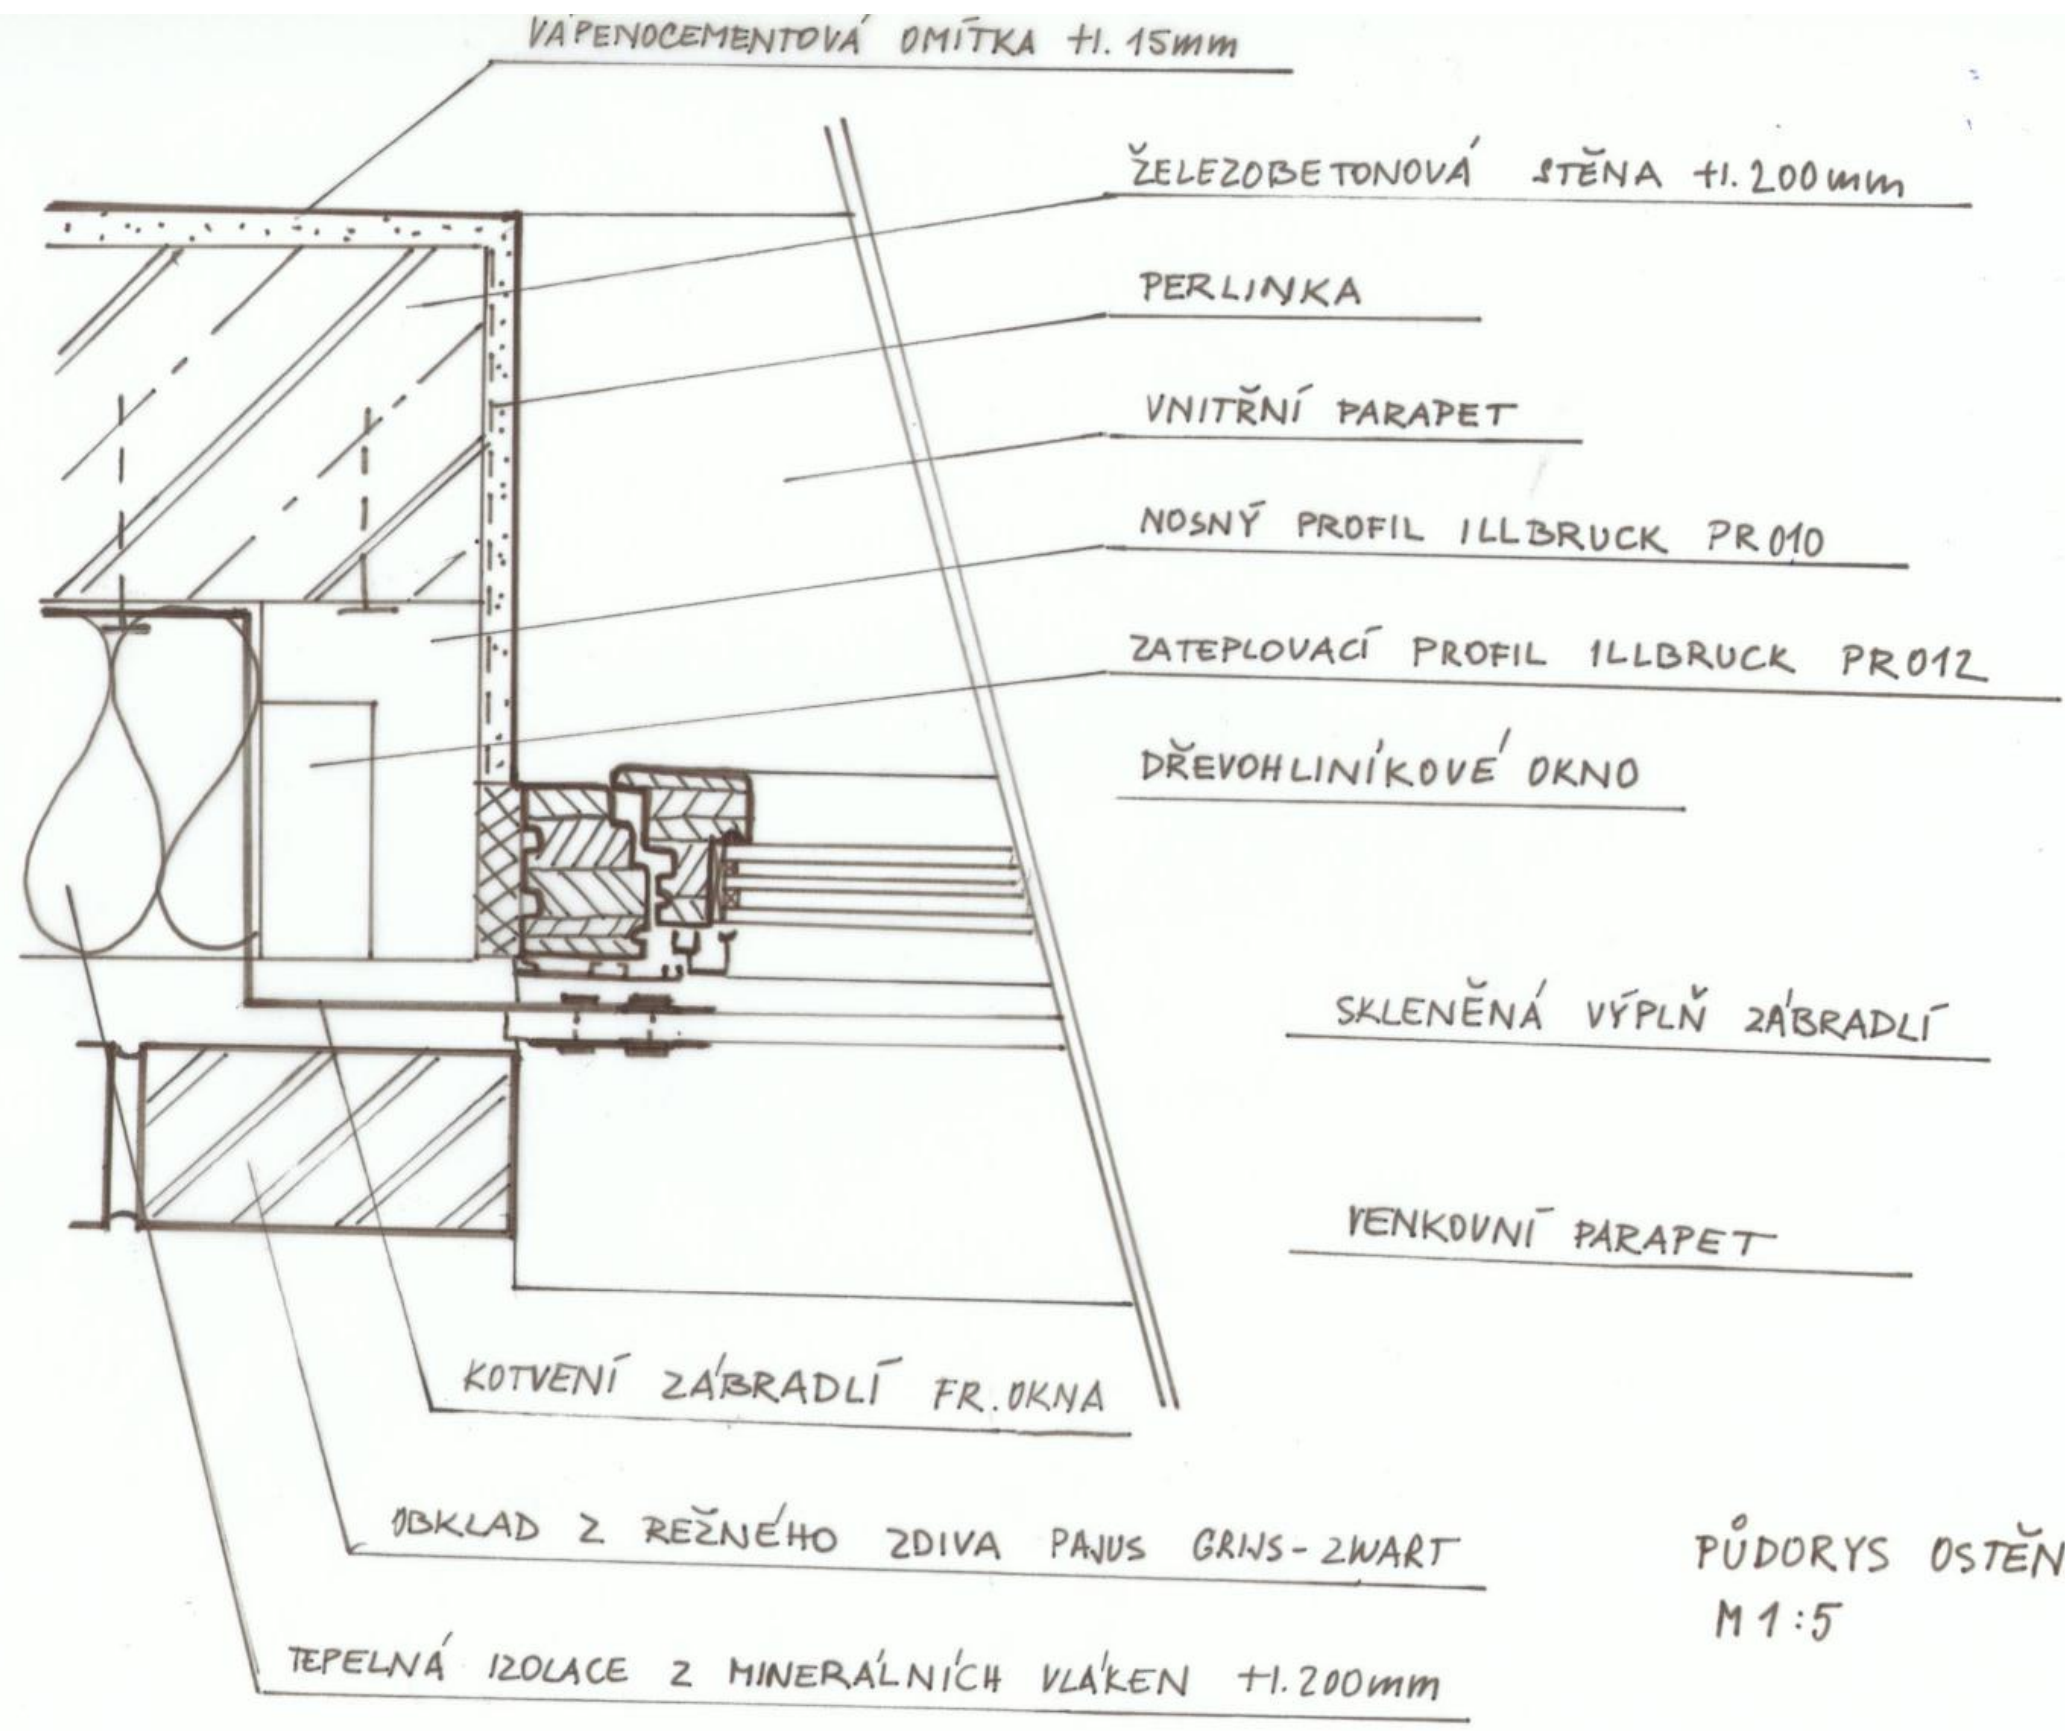 VÁPENOCEMENTOVÁ OMÍTKA tl. 15mm
ŽELEZOBETONOVÁ STĚNA tl. 200mm
PERLINKA
VNITŘNÍ PARAPET
NOSNÝ PROFIL ILLBRUCK PR010
ZATEPLOVACÍ PROFIL ILLBRUCK PR012
DŘEVOHLINÍKOVÉ OKNO
SKLENĚNÁ VÝPLŇ ZÁBRADLÍ
VENKOVNÍ PARAPET
KOTVENÍ ZÁBRADLÍ FR. OKNA
OBKLAD Z REŽNÉHO ZDIVA PAJUS GRIJS-ZWART
PŮDORYS OSTĚN
M 1:5
TEPELNÁ IZOLACE Z MINERÁLNÍCH VLÁKEN tl. 200mm